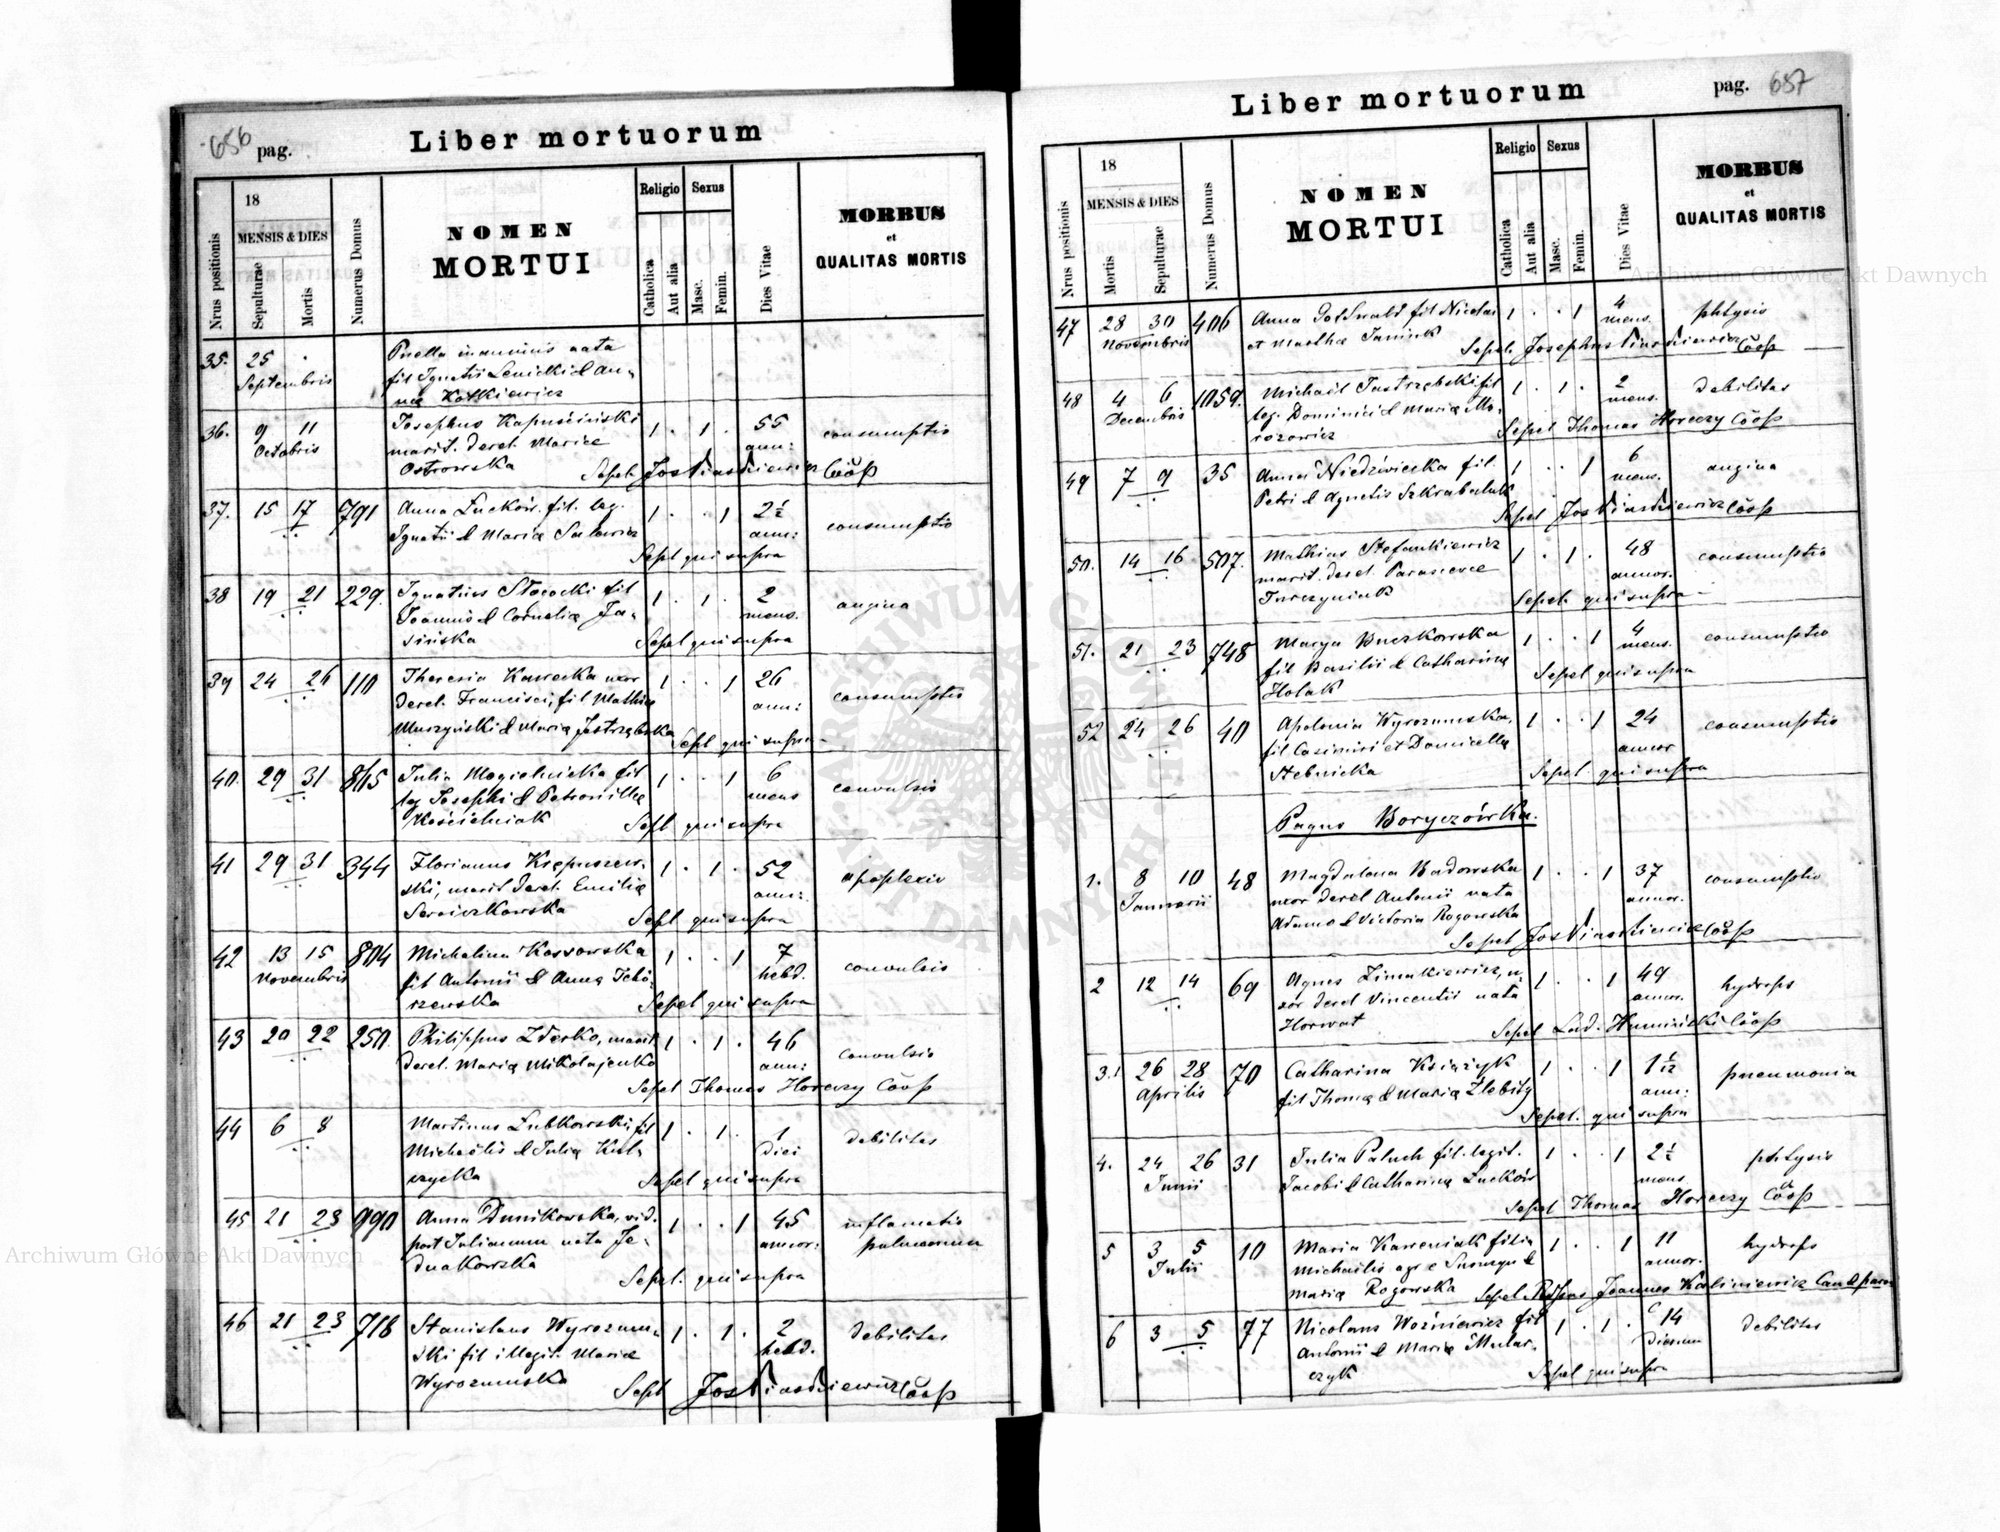 656 pag.
Liber mortuorum
Nrus positionis
18
MENSIS & DIES
Sepulturae
Mortis
Numerus Domus
NOMEN
MORTUI
Religio
Catholica
Aut alia
Sexus
Masc.
Femin.
Dies Vitae
MORBUS
et
QUALITAS MORTIS
35. 25 Puella innominis nata
Septembris fil Ignatii &
36. 9 11 Josephus Kapuściński 1 . 1 . 55 consumptio
Octobris marit. derel. Mariae ann:
Ostrowska Sepel. Coop
37. 15 17 791 Anna Luckow. fil. leg. 1 . . 1 2½ consumptio
Ignatii & Maria ann:
Sepl qui supra
38 19 21 229. Ignatius fil 1 . 1 . 2 angina
Joannis & Cornelia Ja- mens.
sińska Sepel qui supra
39 24 26 110 Theresia Kawecka uxor 1 . . 1 26 consumptio
derel. Francisci, fil Mathia ann:
Murzyński & Maria Jastrzębska Sepl qui supra
40. 29 31 865 Julia fil. 1 . . 1 6 convulsio
leg Josephi & Petronilla mens
Kościelniak Sepl qui supra
41 29 31 344 Florianus 1 . 1 . 52 apoplexio
ski, marit derel. Emilia ann:
Sepl qui supra
42 13 15 804 Michalina Kossowska 1 . . 1 7 convulsio
Novembris fil Antonii & Anna Tchó- hebd.
rzewska Sepel qui supra
43 20 22 250. Philippus Zderko, marit 1 . 1 . 46 convulsio
derel. Maria Mikolajenko ann:
Sepel Thomas Horeczy Coop
44 6 8 Martinus Lubkowski, fil 1 . 1 . 1 debilitas
Michaelis & Julia Kul- diei
czycka Sepel qui supra
45 21 23 990 Anna Dunikowska, vid. 1 . . 1 45 inflamatio
post Julianum nata Je- annor: pulmonum
dnakowska Sepel. qui supra
46 21 23 718 Stanislaus Wyrozum- 1 . 1 . 2 debilitas
ski fil illegit. Maria hebd.
Wyrozumska Sepl Coop
Liber mortuorum
pag. 657
Nrus positionis
18
MENSIS & DIES
Mortis
Sepulturae
Numerus Domus
NOMEN
MORTUI
Religio
Catholica
Aut alia
Sexus
Masc.
Femin.
Dies Vitae
MORBUS
et
QUALITAS MORTIS
47 28 30 406 Anna fil Nicolai 1 . . 1 4 phtysis
Novembris et Martha Janiuk mens.
Sepel. Josephus Coop
48 4 6 1059. Michael Jastrzębski fil 1 . 1 . 2 debilitas
Decembris leg. Dominici & Maria Mo- mens.
rozowicz Sepel Thomas Horeczy Coop
49 7 9 35 Anna Niedźwiecka fil. 1 . . 1 6 angina
Petri & Agnetis Szkrabaluk mens.
Sepel Coop
50. 14 16 507. Mathias Stefankiewicz 1 . 1 . 48 consumptio
marit. derel. Parascevae annor.
Turczyniak Sepel. qui supra
51. 21 23 748 Marya Buczkowska 1 . . 1 4 consumptio
fil Basilii & Catharina mens.
Holak Sepel qui supra
52 24 26 40 Apolonia Wyrozumska, 1 . . 1 24 consumptio
fil Casimiri et Domicella annor
Stebnicka Sepel. qui supra
Pagus Boryczówka.
1. 8 10 48 Magdalena Badowska 1 . . 1 37 consumptio
Januarii uxor derel Antonii nata annor.
Adamo & Victoria Rogowska
Sepel Coop
2 12 14 69 Agnes Zimakiewicz, u- 1 . . 1 49 hydrops
xor derel Vincentii nata annor.
Horwat Sepel Lud. Coop
3. 26 28 70 Catharina Książyk 1 . . 1 1 1/12 pneumonia
Aprilis fil Thoma & Maria ann:
Sepel. qui supra
4. 24 26 31 Julia Paluch fil. legit. 1 . . 1 2½ phtysis
Junii Jacobi & Catharina Luckow mens
Sepel Thomas Horeczy Coop
5 3 5 10 Maria Kaweniak filia 1 . . 1 11 hydrops
Julii Michaelis & annor.
Maria Rogowska Sepel. Joannes Kaliniewicz
6 3 5 77 Nicolaus Woźniewicz fil 1 . 1 . 14 debilitas
Antonii & Maria Mular- dierum
czyk Sepel qui supra
Archiwum Główne Akt Dawnych
Archiwum Główne Akt Dawnych
ARCHIWUM GŁÓWNE AKT DAWNYCH